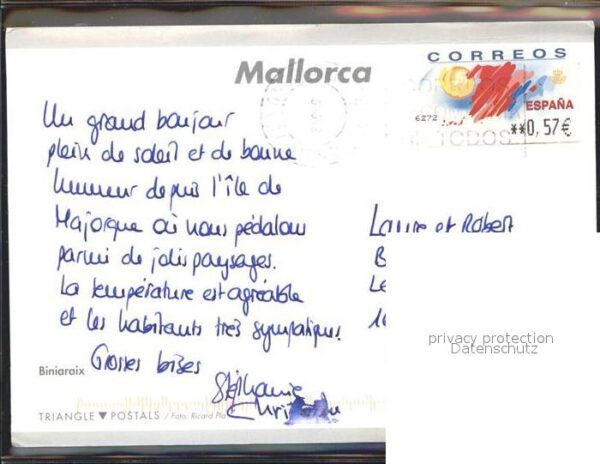 CORREOS
Mallorca
ESPAÑA
6272
**0,57€
TODOS
Un grand bonjour
plein de soleil et de bonne
humeur depuis l'île de
Majorque où nous pédalons
parmi de jolis paysages.
La température est agréable
et les habitants très sympatiques.
Grosses bises
Stéphanie
Laure et Robert
B
Le
privacy protection
Datenschutz
Biniaraix
TRIANGLE ▼ POSTALS / Foto: Ricard Pla